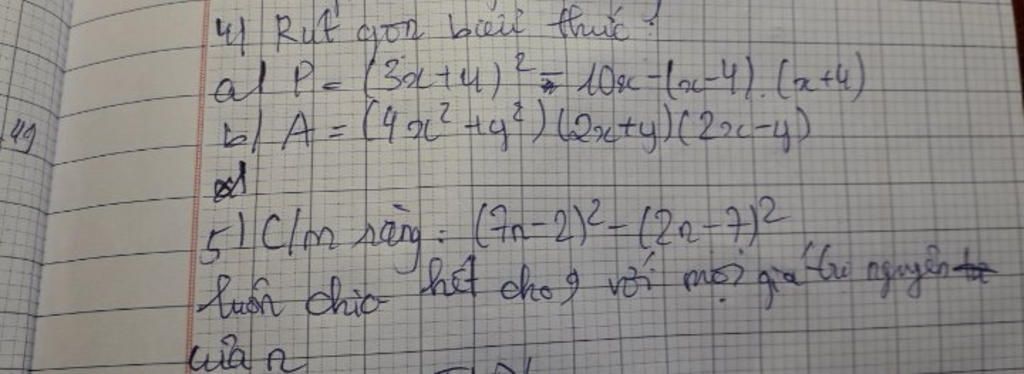 49
4) Rút gọn biểu thức:
a) P = (3x+4)² - 10x - (x-4).(x+4)
b) A = (4x² + y²)(2x+y)(2x-y)
5) C/m rằng: (7n-2)² - (2n-7)²
luôn chia hết cho 9 với mọi giá trị nguyên
của n